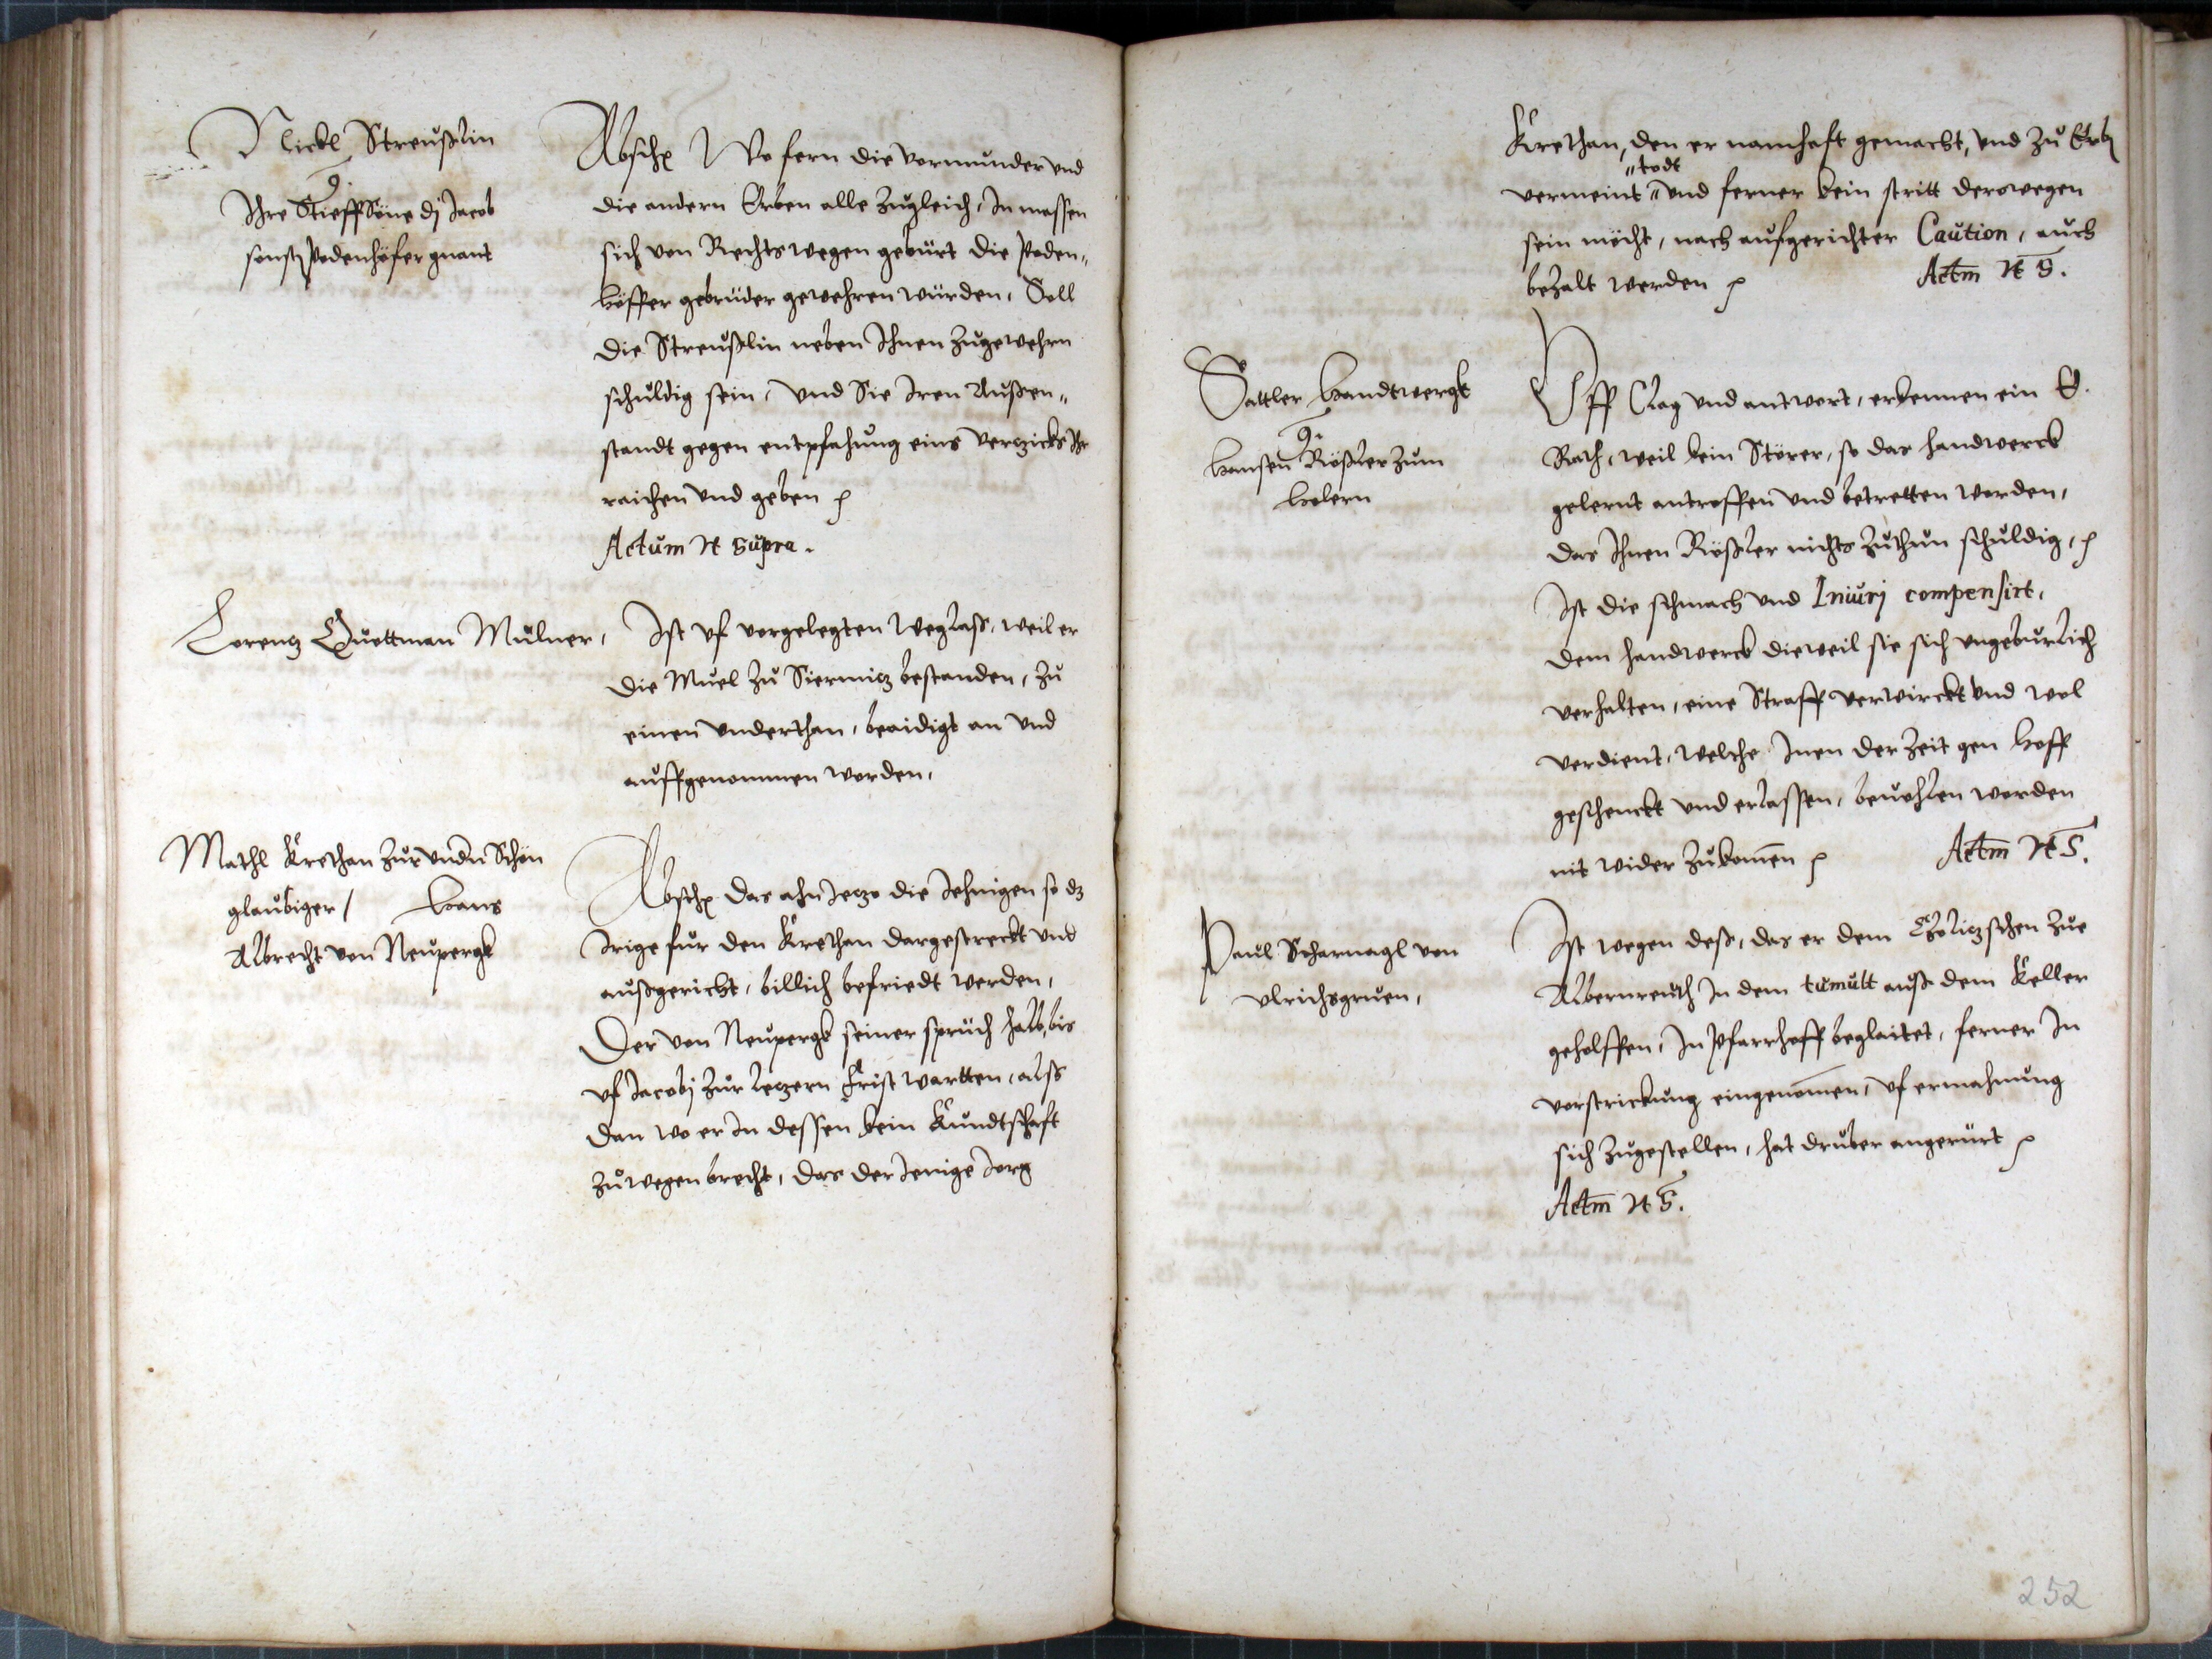 Nickl Streußlin
g.
Ihre Stieff Söne dj Jacob
sonst Podenhöfer gnant
Absch: Wo fern die vormunder vnd
die andern Erben alle zugleich, In massen
sich von Rechts wegen gebürt die Poden-
höffer gebrüder gewehren würden, Soll
die Streußlin neben Ihnen zugewehrn
schuldig sein, vnd Sie Iren Außen-
standt gegen entpfahung eins verzichts Ihr
raichen vnd geben
Actum Vt Supra.
Lorentz Quottman Mülner,
Ist vf vorgelegten Weglaß, weil er
die Muel zu Siermitz bestanden, zu
einen vnderthan, beaidigt an vnd
auffgenommen worden,
Mathl Krethan zur vndn Schön
glaubiger / Hans
Albrecht von Neupergk
Absch: das ahn Jetzo die Jehnigen so dz
Irige fur den Krethan dargestreckt vnd
außgericht, billich befriedt werden,
Der von Neupergk seiner sprüch halb, bis
vf Jacobj zur letzern Frist wartten, alß
dan wo er In dessen kein Kundtschaft
zuwegen brecht, das der Jenige Jorg
Krethan, den er namhaft gemacht, vnd zu Erb
todt
vermeint " vnd ferner kein stritt derowegen
sein möcht, nach aufgerichter Caution, auch
bezalt werden Actm Vt S.
Sattler Handtwergk
g.
Hansen Rößler zum
Holern
Vff Clag vnd antwort, erkennen ein E.
Rath, weil kein Störer, so das handwerck
gelernt antroffen vnd betretten worden,
das Ihnen Rößler nichts zuthun schuldig,
Ist die schmach vnd Iniurj compensirt,
dem handwerck dieweil sie sich vngeburlich
verhalten, eine Straff verwirckt vnd wol
verdient, welche Inen der Zeit gen Hoff
geschenckt vnd erlassen, beuohlen worden
nit wider zukomen Actm Vt S.
Paul Scharnagl von
Vlrichsgruen,
Ist wegen deß, das er dem Cholitzschen zue
Albernreuth In dem tumult auß dem Keller
geholffen, In Pfarrhoff beglaitet, ferner In
verstrickung eingenomen, vf ermahnung
sich zugestellen, hat druber angerürt
Actm Vt S.
252